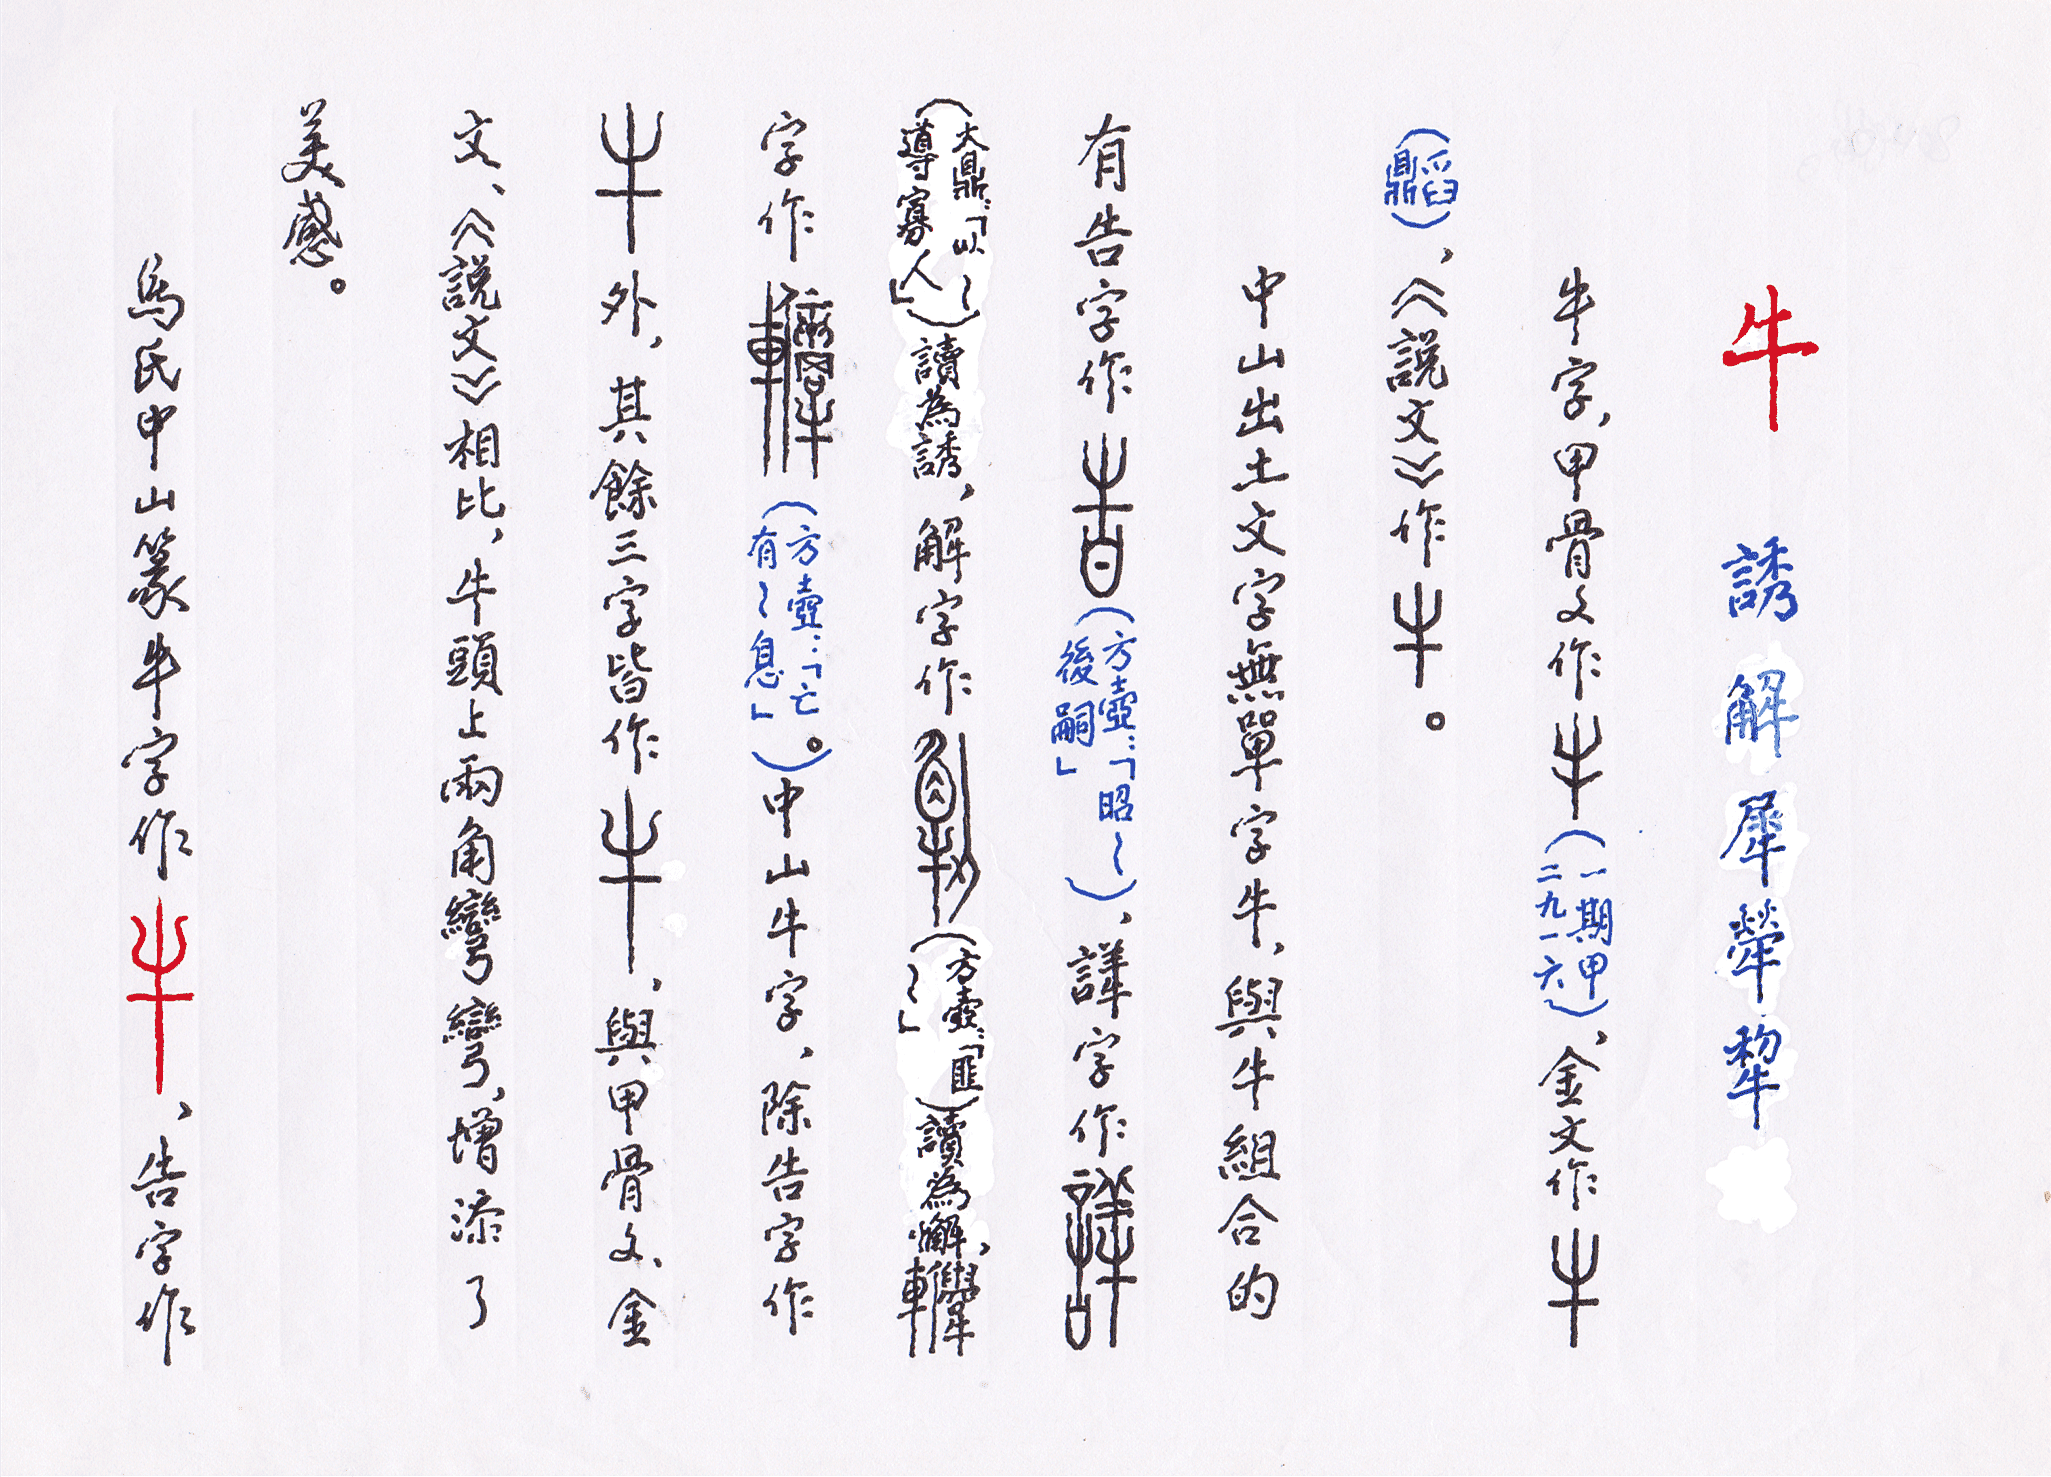 牛 誘解犀犖犂
牛字，甲骨文作牛（一期甲二九一六）、金文作牛
（舀鼎）、《説文》作牛。
中山出土文字無單字牛，與牛組合的
有告字作告（方壺：「昭〻後嗣」）、誁字作
（大鼎：「以〻導寡人」）讀為誘，解字作（方壺：「匪〻」）讀為懈，
字作（方壺：「亡有〻息」）。中山牛字，除告字作
牛外，其餘三字皆作牛，與甲骨文、金
文、《説文》相比，牛頭上兩角彎彎，增添了
美感。
馬氏中山篆牛字作牛、告字作